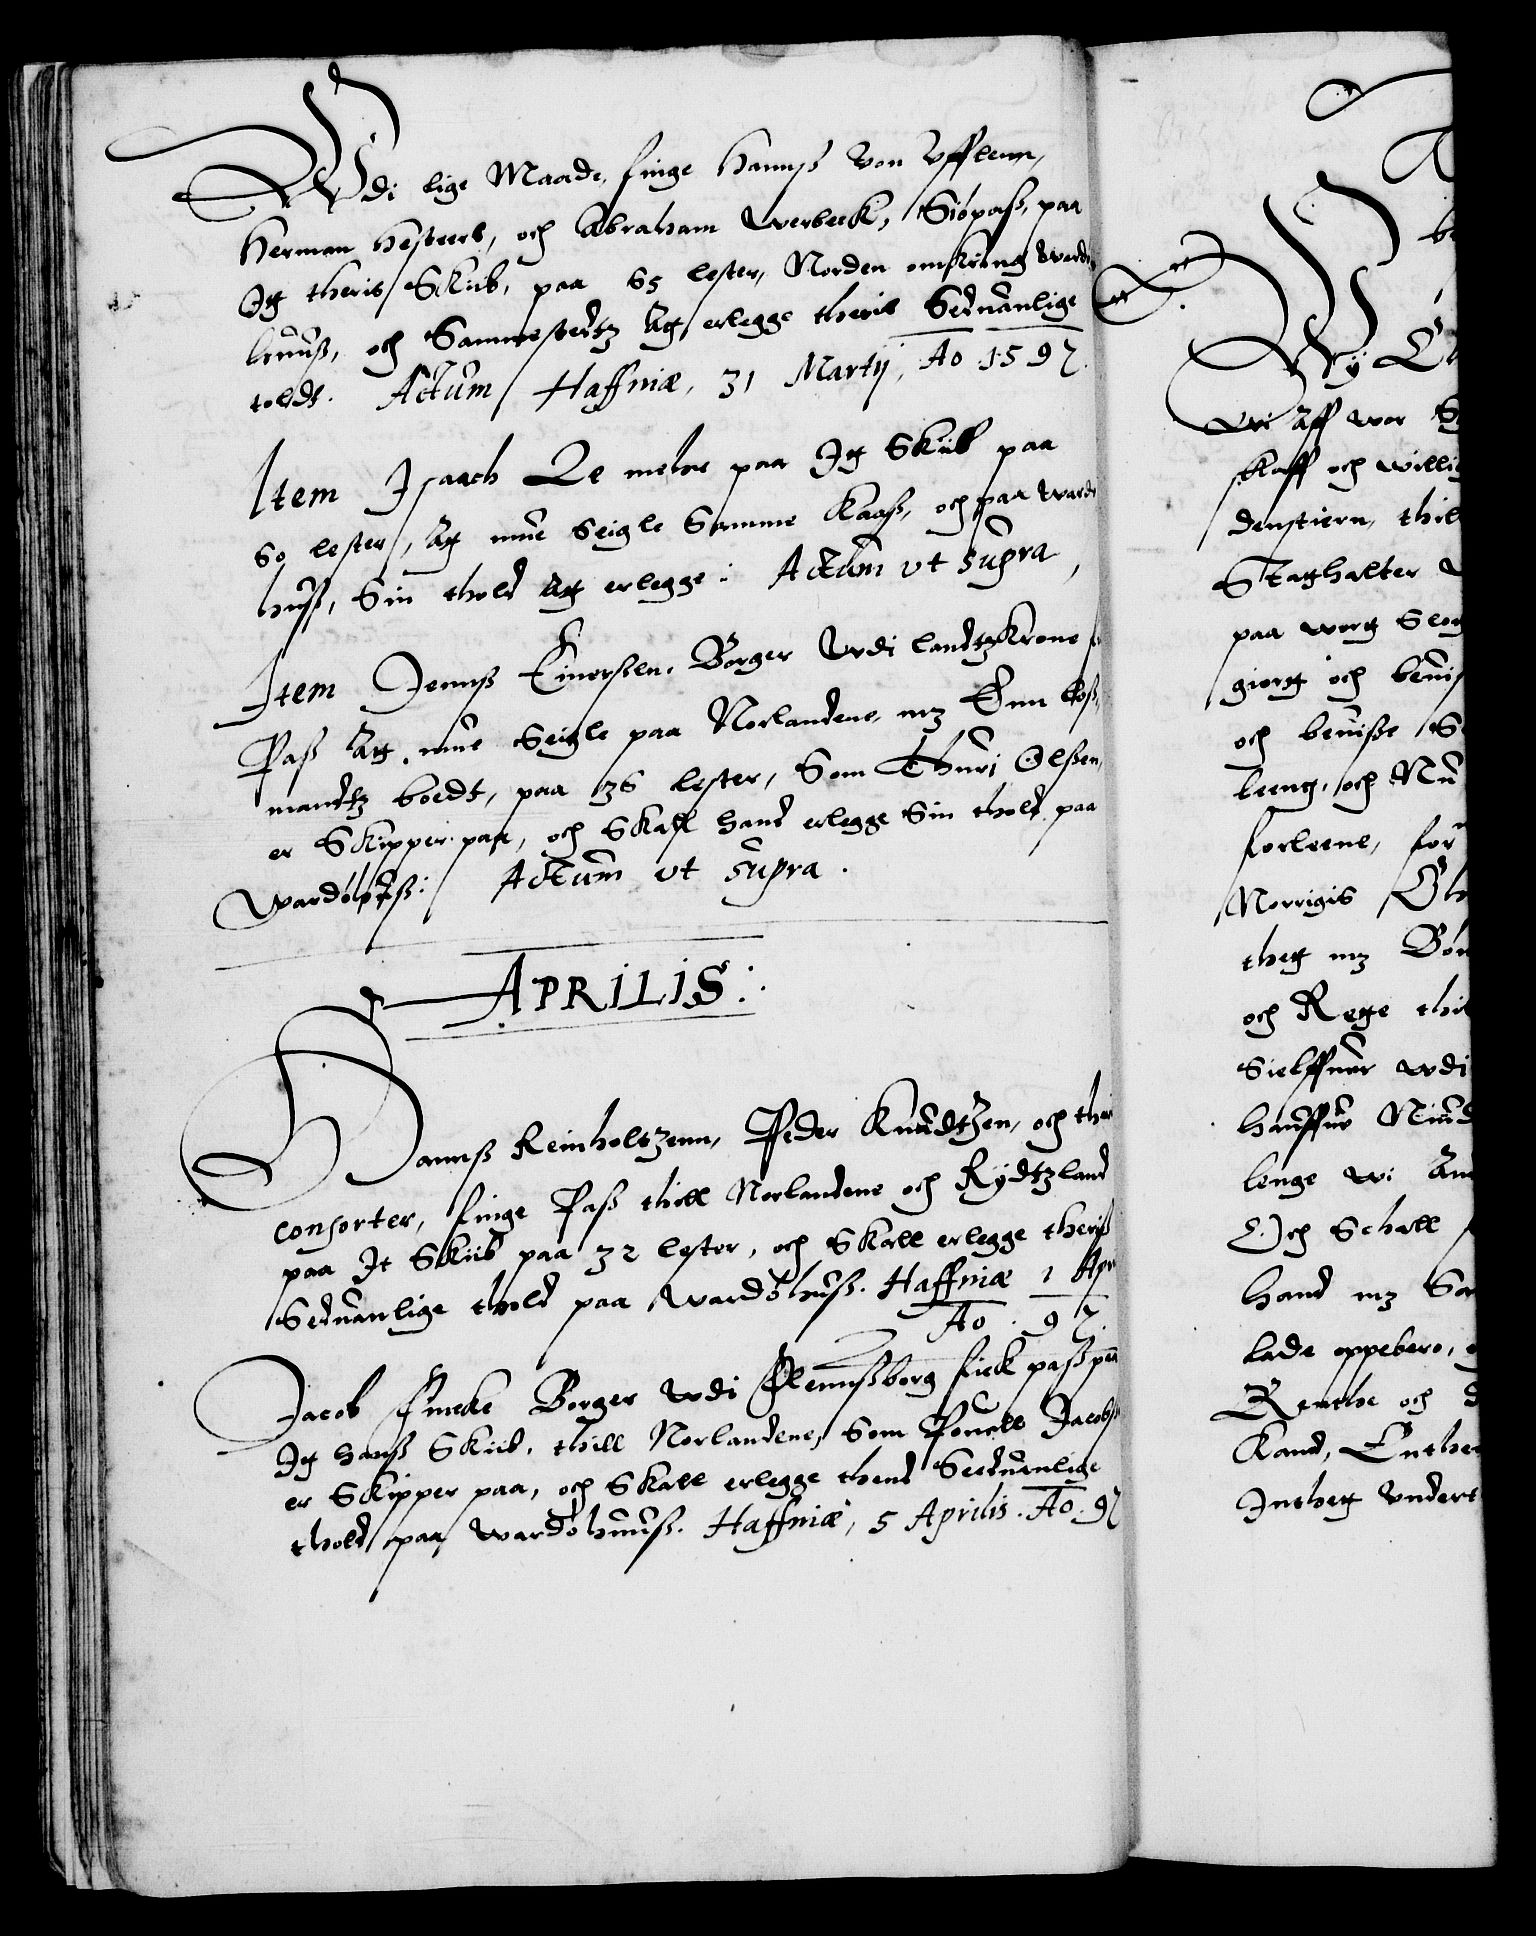 Wdi lige Maade, finge Hannß von Ufflenn,
Herman Hesterb, och Abraham Werbeck, Siöpaß, paa
Itt theris Skiib, paa 65 lester, Norden omkring Wardø
huuß, och Sammestedtz att erlegge theris Seduanlige
toldt. Actum Haffniæ, 31 Martij, Ao 1597.
Item Isaach Le mehre paa Itt Skiib paa
60 lester, att mue Seigle Samme Kaaß, och paa Wardø
huß, Sin thold att erlegge: Actum ut supra,
Item Jennß Einerßen, Borger Wdi landtzkrone
Paß att mue Seigle paa Norlandene, mz Enn
mandtz boedt, paa 36 lester, Som Thuri Olßen,
er Skipper paa, och Skall hand erlegge Sin thold paa
Wardøhuß: Actum ut supra.
APRILIS:
Hannß Reinholtzenn, Peder Knudtzen, och theris
consorter, finge Paß thill Norlandene och Rydtzland
paa It Skiib paa 32 lester, och Skall erlegge theriß
Seduanlige thold paa Wardøhuß. Haffniæ 1 Apr
Ao. 97.
Jacob Fincke Borger wdi Flennßborg fick paß paa
Itt hanß Skiib, thill Norlandene, Som Pouell Jacobß
er Skipper paa, och Skall erlegge thend Seeduanlige
thold paa Wardøhuuß. Haffniæ, 5 Aprilis. Ao. 97
Wy Ch
Wi aff wor
skaff och willi
denstiern, thil
Statholter
paa worg Slog
giorg och beuis
och beuiße
leeng, och Nu
forleene, for
Norrigis
theg mz Bøn
och Rege thi
Sielffuer wdi
hauffue
lenge wi And
Och Schall
hand mz Sa
lade oppebere,
Renthe och
Kand, Enthe
Intheg Undert